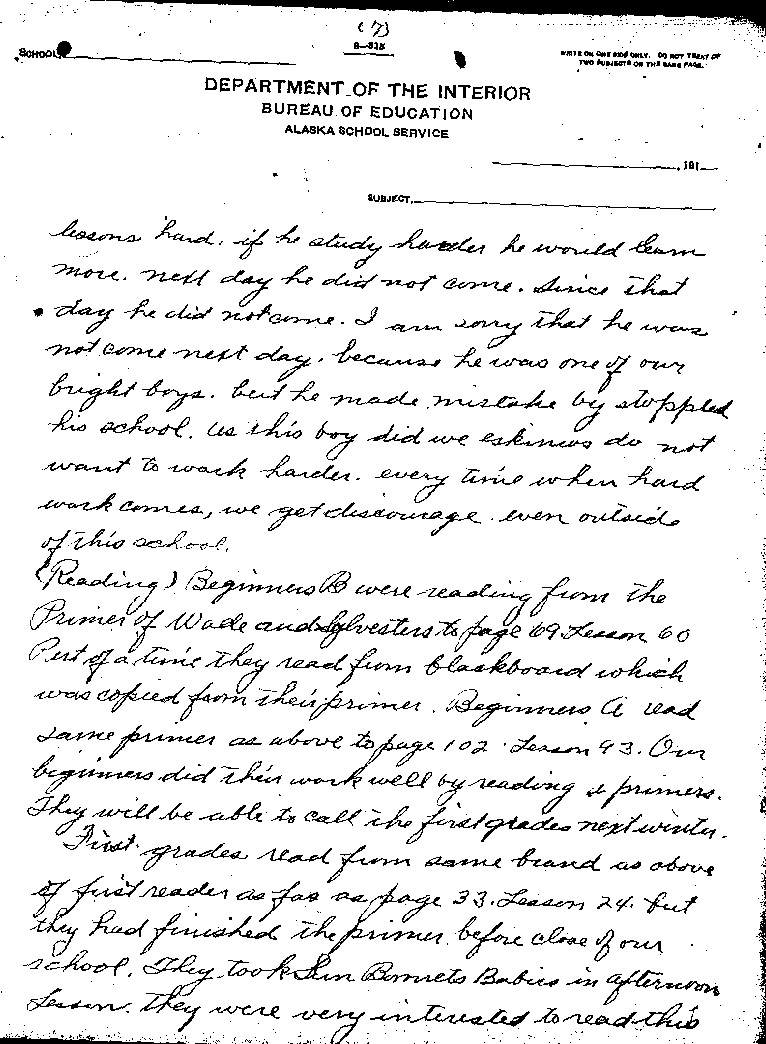 (7)
8-315
SCHOOL,
WRITE ON ONE SIDE ONLY. DO NOT TREAT OF
TWO SUBJECTS ON THE SAME PAGE.
DEPARTMENT OF THE INTERIOR
BUREAU OF EDUCATION
ALASKA SCHOOL SERVICE
, 191
SUBJECT,
lessons hard. if he study harder he would learn
more. next day he did not come. Since that
day he did not come. I am sorry that he was
not come next day. because he was one of our
bright boys. but he made mistake by stoppled
his school. as this boy did we eskimos do not
want to work harder. every time when hard
work comes, we get discourage. even outside
of this school.
(Reading) Beginners B were reading from the
Primer of Wade and Sylvesters to page 69 Lesson 60
Part of a time they read from blackboard which
was copied from their primer. Beginners A read
same primer as above to page 102. Lesson 93. Our
beginners did their work well by reading primers.
They will be able to call the first grades next winter.
First grades read from same brand as above
of first reader as far as page 33. Lesson 24. but
they had finished the primer before close of our
school. They took Sun Bonnets Babies in afternoon
Lesson. they were very interested to read this